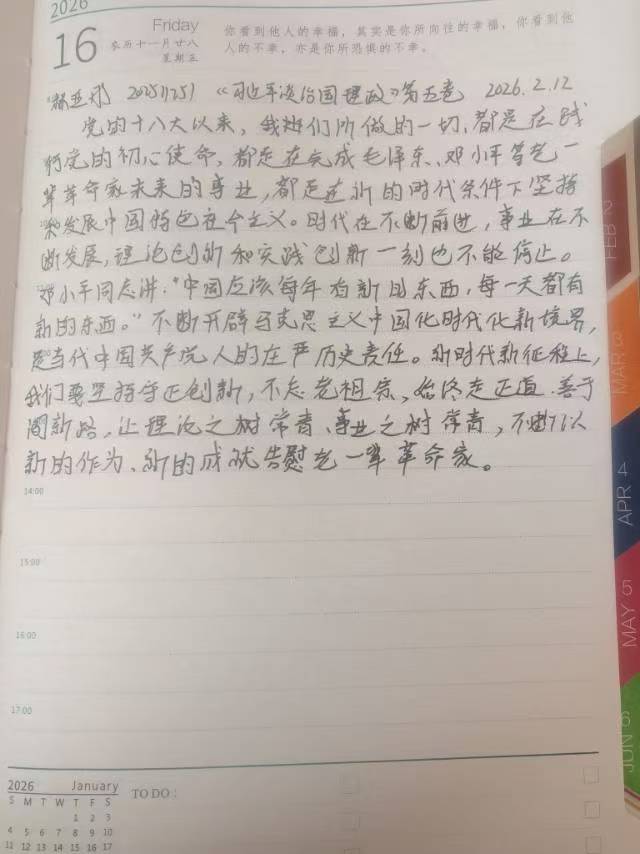 2026
16
Friday
农历十一月廿八
星期五
你看到他人的幸福，其实是你所向往的幸福，你看到他
人的不幸，亦是你所恐惧的不幸。
20251251 《习近平谈治国理政》第五卷 2026.2.12
党的十八大以来，我们所做的一切，都是在践
行党的初心使命，都是在完成毛泽东、邓小平等老一
辈革命家未来的事业，都是在新的时代条件下坚持
和发展中国特色社会主义。时代在不断前进，事业在不
断发展，理论创新和实践创新一刻也不能停止。
邓小平同志讲："中国应该每年有新的东西，每一天都有
新的东西。"不断开辟马克思主义中国化时代化新境界，
是当代中国共产党人的庄严历史责任。新时代新征程上，
我们要坚持守正创新，不忘老祖宗，始终走正道、善于
闯新路，让理论之树常青、事业之树常青，不断以
新的作为、新的成就告慰老一辈革命家。
14:00
15:00
16:00
17:00
2026 January
S M T W T F S
1 2 3
4 5 6 7 8 9 10
11 12 13 14 15 16 17
TO DO：
FEB 2
MAR 3
APR 4
MAY 5
JUN 6